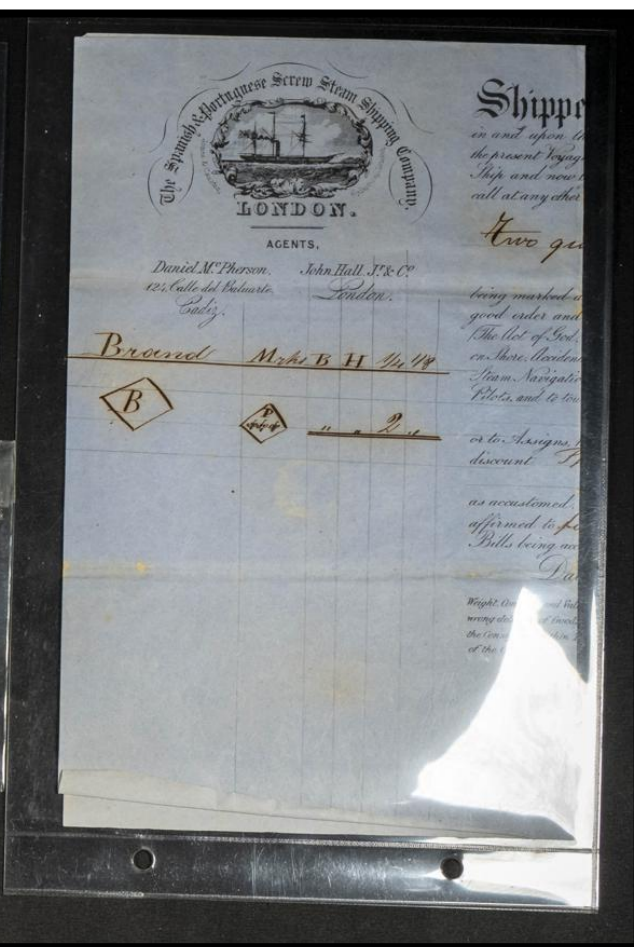 The Spanish & Portuguese Screw Steam Shipping Company,
LONDON.
AGENTS,
Daniel Mc.Pherson. John Hall Jr. & Co
124, Calle del Baluarte. London.
Cadiz.
Brand Mrks B H 1/4 1/8
B
P
" " 2 "
Shippe
in and upon th
the present Voyag
Ship and now
call at any other
Two qu
being marked
good order and
(The Act of God,
on Shore, Acciden
Steam Navigatio
Pilots, and to tow
or to Assigns,
discount
as accustomed.
affirmed to
Bills being acc
Da
Weight,
wrong
the
of the